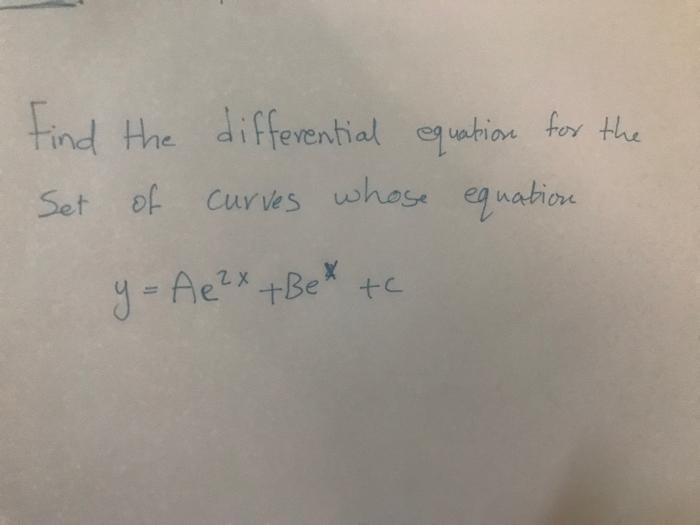 Find the differential equation for the
Set of curves whose equation
y = Ae²ˣ + Beˣ + C